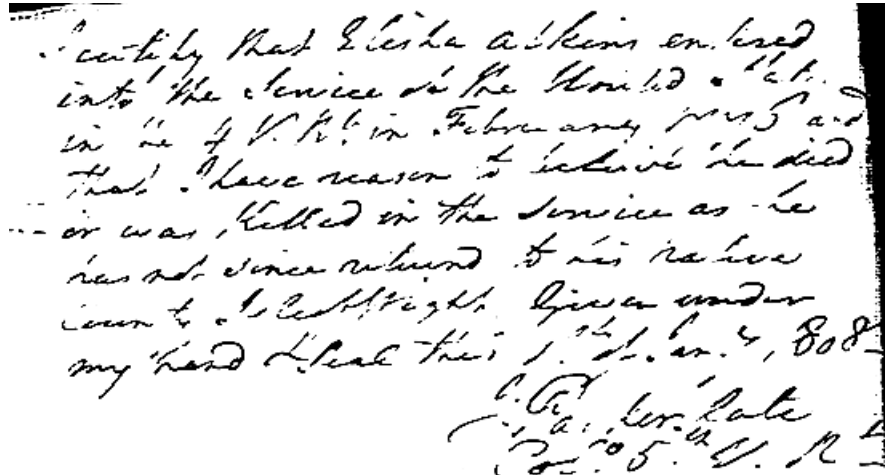 I certify that Elisha Atkins entered
into the Service of the United States
in the 4 V. Rt. in February and
that I have reason to believe he died
or was Killed in the Service as he
has not since returned to his native
County Isle of Wight. Given under
my hand & Seal this 1808
late
5th V. Rt